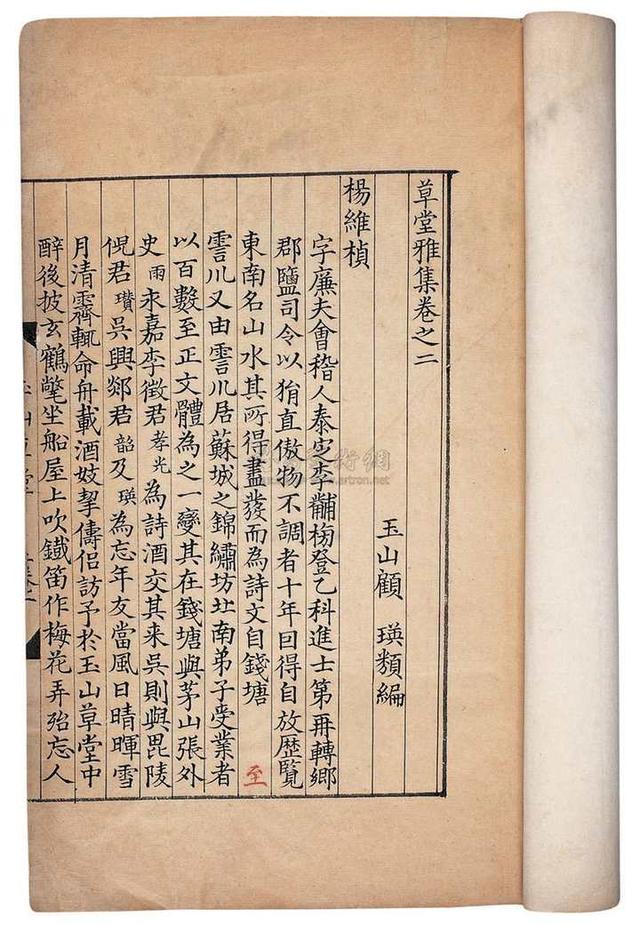 草堂雅集卷之二
玉山顧 瑛類編
楊維楨
字廉夫會稽人泰定李黼榜登乙科進士第再轉鄉
郡鹽司令以狷直傲物不調者十年囙得自放歷覽
東南名山水其所得盡發而為詩文自錢塘至
霅川又由霅川居蘇城之錦繡坊北南弟子受業者
以百數至正文體為之一變其在錢塘與茅山張外
史雨永嘉李徵君孝光為詩酒交其來吳則與毘陵
倪君瓚吳興郯君韶及瑛為忘年友當風日晴暉雪
月清霽輒命舟載酒妓挈儔侶訪予於玉山草堂中
醉後披玄鶴氅坐船屋上吹鐵笛作梅花弄殆忘人